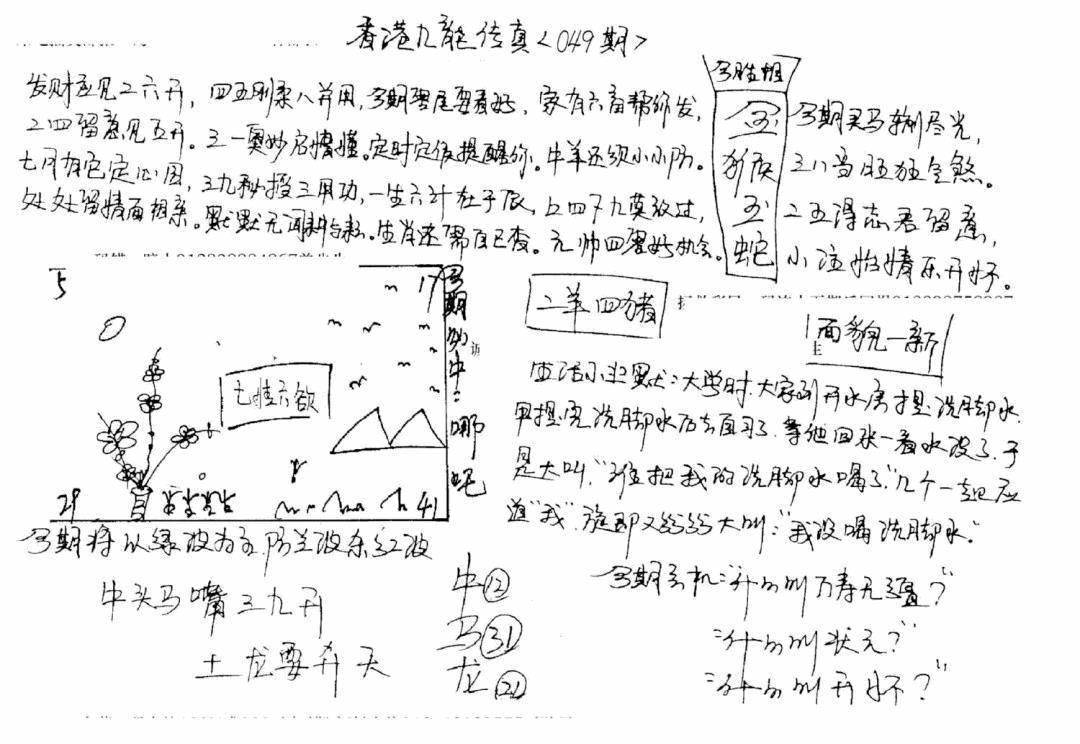 香港九龍传真<049期>
发财还见二六开，四五刚柔八并用，今期翌尾要看好，家有六畜帮你发，
二四留意见五开。三一奥妙启情懂。定时定候提醒你。牛羊还须小小防。
七月有它定心因，三九秒授三用功，一生六计在于辰，五四下九莫放过，
处处留情面相亲。默默无闻耕与耘。生肖还需自己查。元帅四留好机会。
今期买马输尽光，
三八当旺狂呈煞。
二五得志君留意，
小注怡情乐开怀。
今胜相
金
猴
玉
蛇
5
17
29
41
七情六欲
今期必中：哪吒
二羊四方猪
面貌一新
生活小幽默：大学时，大家到开水房提洗脚水，
甲提完洗脚水后去自习了，等他回来一看水没了，于
是大叫，"谁把我的洗脚水喝了"几个一起应
道"我"，旋即又纷纷大叫："我没喝洗脚水。"
今期将以绿波为主，防兰波杀红波
牛头马嘴三九开
土龙要升天
牛⑫
马㉛
龙㉑
今期玄机："什么叫万寿无疆？"
"什么叫状元？"
"什么叫开怀？"